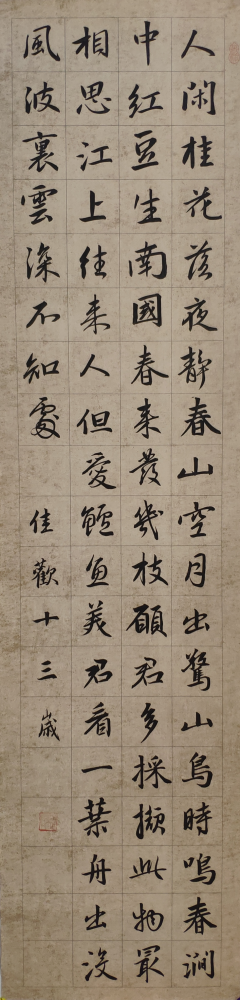 人閑桂花落夜靜春山空月出驚山鳥時鳴春澗
中紅豆生南國春來發幾枝願君多採擷此物最
相思江上往來人但愛鱸魚美君看一葉舟出没
風波裏雲深不知處 佳歡十三歲